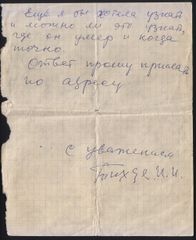 Ещё я бы хотела узнать
и можно ли это узнать,
где он умер и когда
точно.
Ответ прошу прислать
по адресу
с уважением